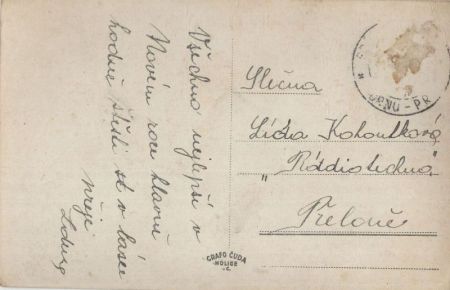 Všechno nejlepší v
Novém roce hlavně
hodně štěstí st v lásce
přeje
Slečna
Lída Kohoutková
"Radiotechna"
Přelouč
GRAFO ČUDA
HOLICE
v.Č.